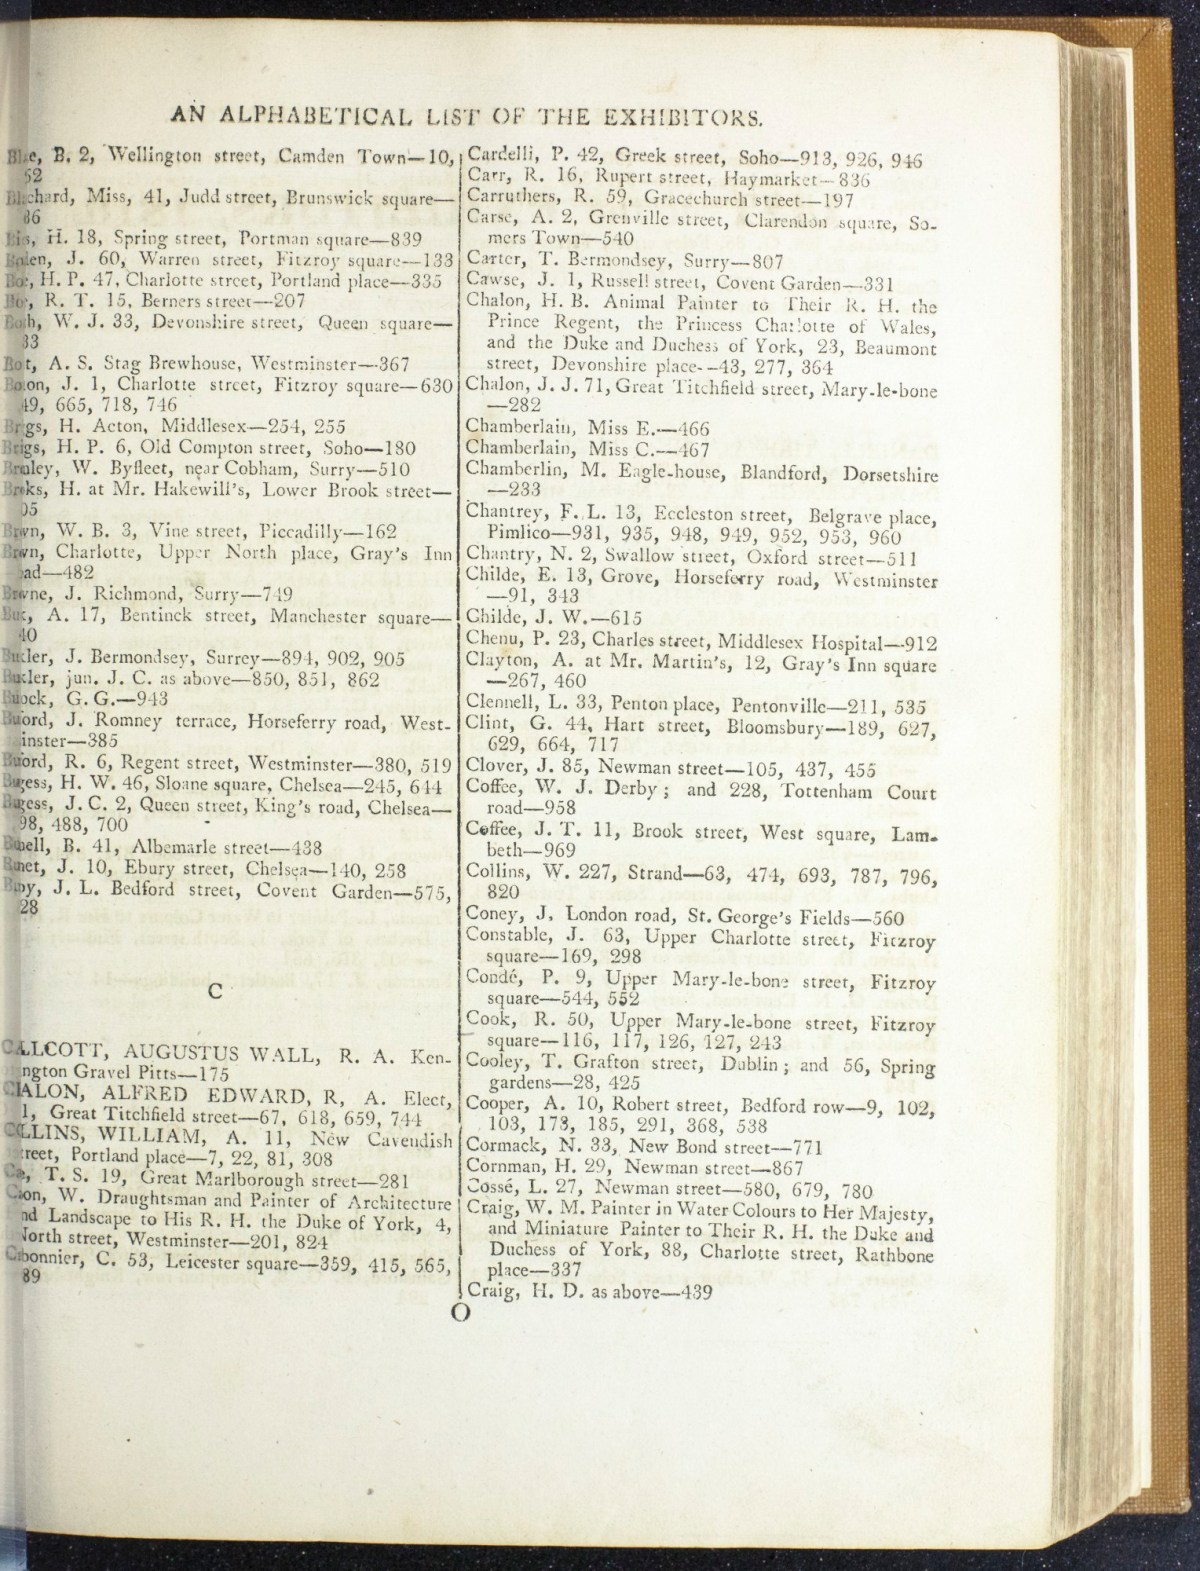 AN ALPHABETICAL LIST OF THE EXHIBITORS.
B. 2, Wellington street, Camden Town—10,
52
Miss, 41, Judd street, Brunswick square—
36
H. 18, Spring street, Portman square—839
J. 60, Warren street, Fitzroy square—133
H. P. 47, Charlotte street, Portland place—335
R. T. 15, Berners street—207
W. J. 33, Devonshire street, Queen square—
33
A. S. Stag Brewhouse, Westminster—367
J. 1, Charlotte street, Fitzroy square—630
49, 665, 718, 746
H. Acton, Middlesex—254, 255
H. P. 6, Old Compton street, Soho—180
W. Byfleet, near Cobham, Surry—510
H. at Mr. Hakewill's, Lower Brook street—
05
W. B. 3, Vine street, Piccadilly—162
Charlotte, Upper North place, Gray's Inn
ad—482
J. Richmond, Surry—749
A. 17, Bentinck street, Manchester square—
40
J. Bermondsey, Surrey—894, 902, 905
jun. J. C. as above—850, 851, 862
G. G.—943
J. Romney terrace, Horseferry road, West-
inster—385
R. 6, Regent street, Westminster—380, 519
H. W. 46, Sloane square, Chelsea—245, 644
J. C. 2, Queen street, King's road, Chelsea—
98, 488, 700
B. 41, Albemarle street—438
J. 10, Ebury street, Chelsea—140, 258
J. L. Bedford street, Covent Garden—575,
28
C
CALLCOTT, AUGUSTUS WALL, R. A. Ken-
ngton Gravel Pitts—175
CHALON, ALFRED EDWARD, R, A. Elect,
1, Great Titchfield street—67, 618, 659, 744
COLLINS, WILLIAM, A. 11, New Cavendish
treet, Portland place—7, 22, 81, 308
T. S. 19, Great Marlborough street—281
W. Draughtsman and Painter of Architecture
nd Landscape to His R. H. the Duke of York, 4,
North street, Westminster—201, 824
C. 53, Leicester square—359, 415, 565,
89
Cardelli, P. 42, Greek street, Soho—913, 926, 946
Carr, R. 16, Rupert street, Haymarket—836
Carruthers, R. 59, Gracechurch street—197
Carse, A. 2, Grenville street, Clarendon square, So-
mers Town—540
Carter, T. Bermondsey, Surry—807
Cawse, J. 1, Russell street, Covent Garden—331
Chalon, H. B. Animal Painter to Their R. H. the
Prince Regent, the Princess Charlotte of Wales,
and the Duke and Duchess of York, 23, Beaumont
street, Devonshire place--43, 277, 364
Chalon, J. J. 71, Great Titchfield street, Mary-le-bone
—282
Chamberlain, Miss E.—466
Chamberlain, Miss C.—467
Chamberlin, M. Eagle-house, Blandford, Dorsetshire
—233
Chantrey, F. L. 13, Eccleston street, Belgrave place,
Pimlico—931, 935, 948, 949, 952, 953, 960
Chantry, N. 2, Swallow street, Oxford street—511
Childe, E. 13, Grove, Horseferry road, Westminster
—91, 343
Childe, J. W.—615
Chenu, P. 23, Charles street, Middlesex Hospital—912
Clayton, A. at Mr. Martin's, 12, Gray's Inn square
—267, 460
Clennell, L. 33, Penton place, Pentonville—211, 535
Clint, G. 44, Hart street, Bloomsbury—189, 627,
629, 664, 717
Clover, J. 85, Newman street—105, 437, 455
Coffee, W. J. Derby; and 228, Tottenham Court
road—958
Coffee, J. T. 11, Brook street, West square, Lam-
beth—969
Collins, W. 227, Strand—63, 474, 693, 787, 796,
820
Coney, J. London road, St. George's Fields—560
Constable, J. 63, Upper Charlotte street, Fitzroy
square—169, 298
Condé, P. 9, Upper Mary-le-bone street, Fitzroy
square—544, 552
Cook, R. 50, Upper Mary-le-bone street, Fitzroy
square—116, 117, 126, 127, 243
Cooley, T. Grafton street, Dublin; and 56, Spring
gardens—28, 425
Cooper, A. 10, Robert street, Bedford row—9, 102,
103, 173, 185, 291, 368, 538
Cormack, N. 33, New Bond street—771
Cornman, H. 29, Newman street—867
Cossé, L. 27, Newman street—580, 679, 780
Craig, W. M. Painter in Water Colours to Her Majesty,
and Miniature Painter to Their R. H. the Duke and
Duchess of York, 88, Charlotte street, Rathbone
place—337
Craig, H. D. as above—439
O